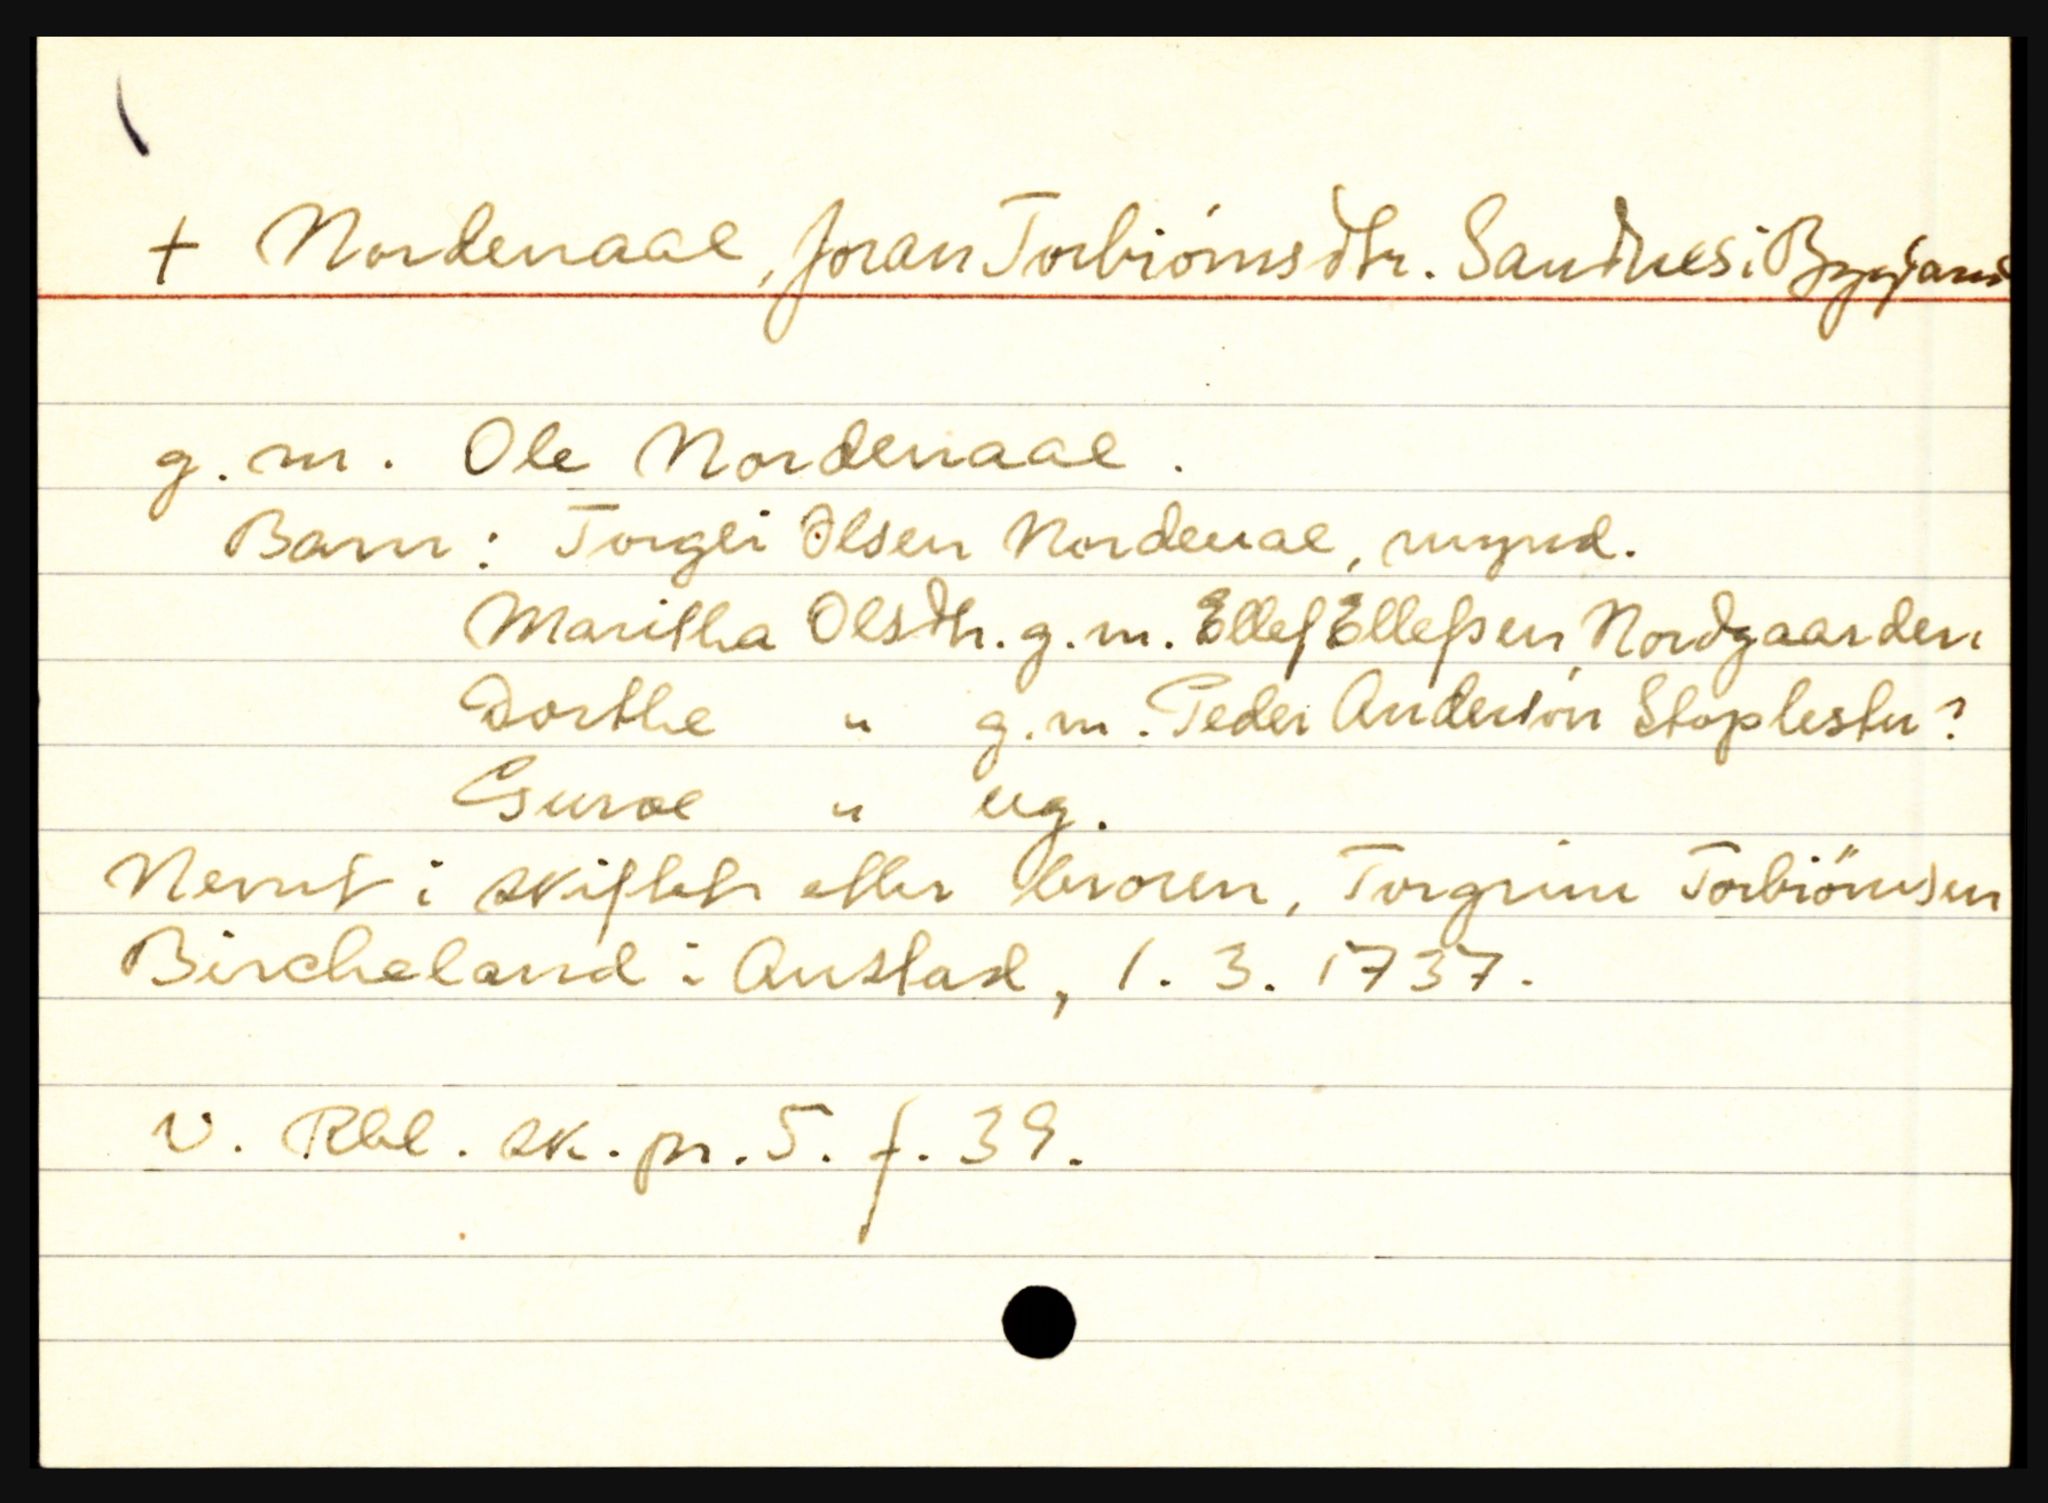 + Nordenaae, Joran Torbiørnsdtr. Sandnes i Bygland
g. m. Ole Nordenaae.
Barn: Torgei Olsen Nordenae, mynd.
Maritha Olsdtr. g. m. Ellef Ellefsen Nordgaarden
Dorthe " g. m. Peder Andersön Stoplestu?
Guroe " ug.
Nevnt i skiftet etter broren, Torgrim Torbiörnsen
Bircheland i Austad, 1. 3. 1737.
V. Rbl. sk. pr. 5. f. 39.